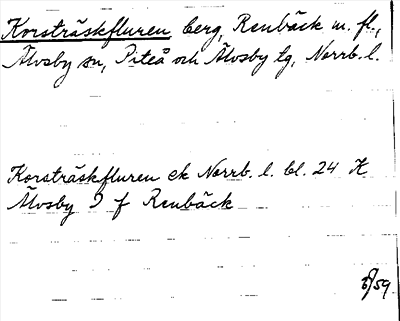 Korsträskfluren, berg, Renbäck m. fl.,
Älvsby sn, Piteå och Älvsby tg, Norrb. l.
Korsträskfluren ek Norrb. l. bl. 24 H
Älvsby 9 f Renbäck
/59